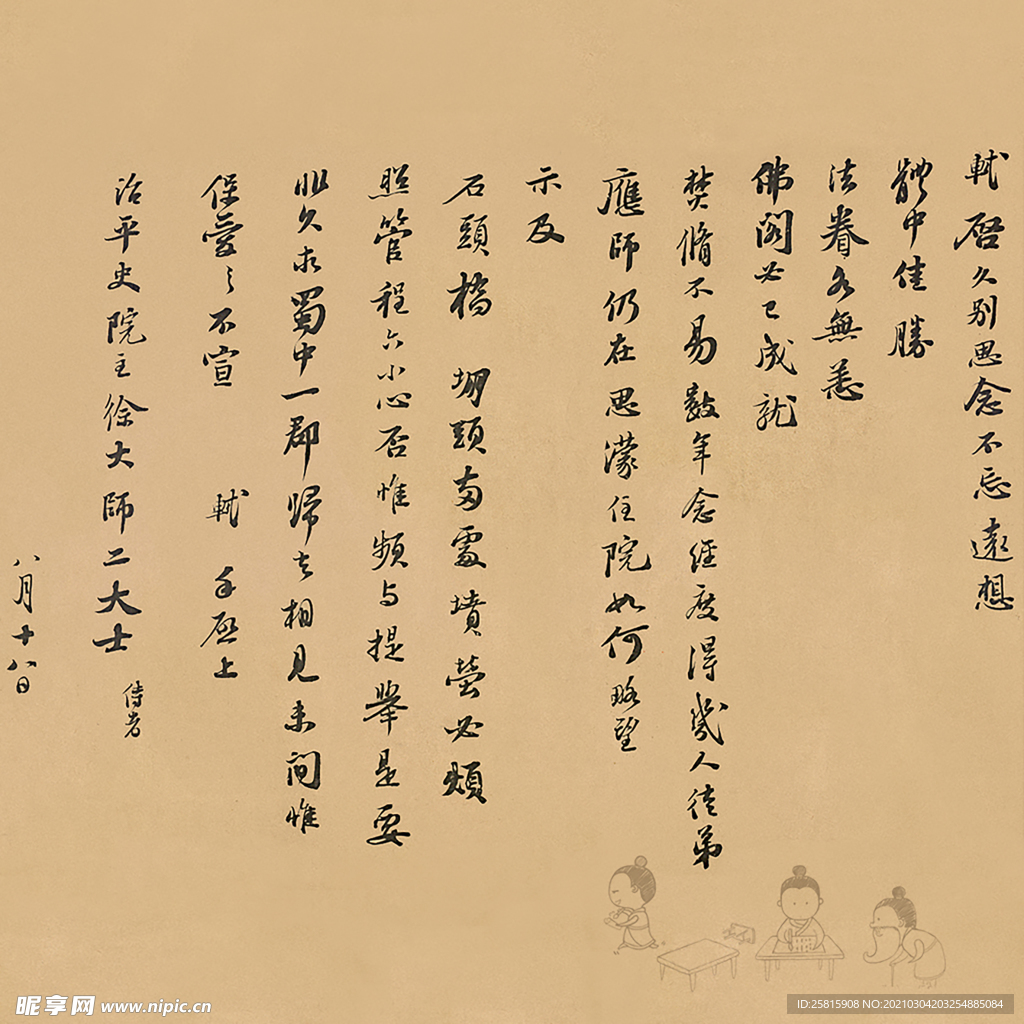 軾啓久别思念不忘遠想
體中佳勝
法眷各無恙
佛閣必已成就
焚脩不易數年念經度得幾人徒弟
應師仍在思濛住院如何略望
示及
石頭橋堋頭兩處墳塋必煩
照管程六小心否惟頻與提舉是要
非久求蜀中一郡歸去相見未間惟
保愛之不宣 軾手啓上
治平史院主徐大師二大士侍者
八月十八日
昵享网 www.nipic.cn
ID:25815908 NO:20210304203254885084